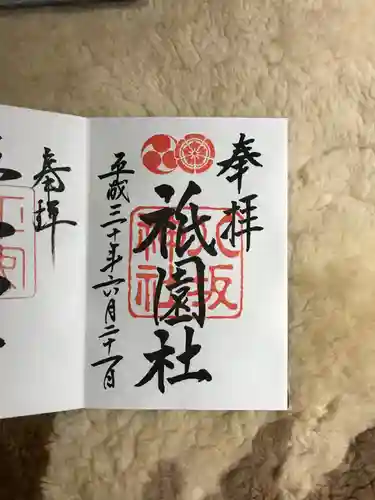 奉拝
八坂神社
祇園社
平成三十年六月二十一日
奉拝